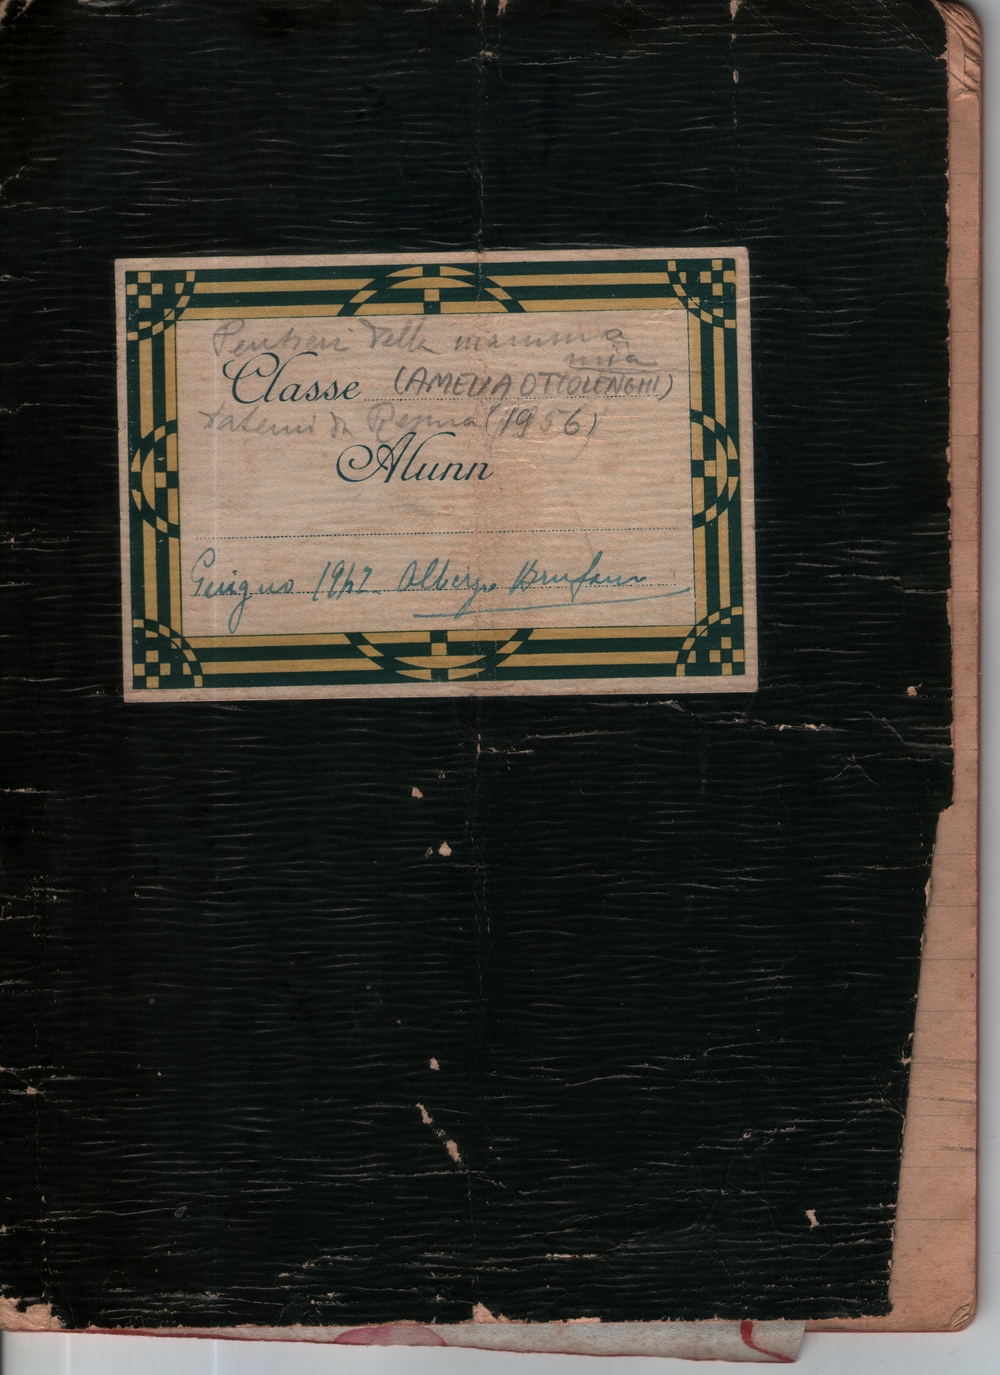 Pensieri della mamma
mia
Classe (AMELIA OTTOLENGHI)
datemi da Regina (1956)
Alunn
Giugno 1942. Albergo Brufani